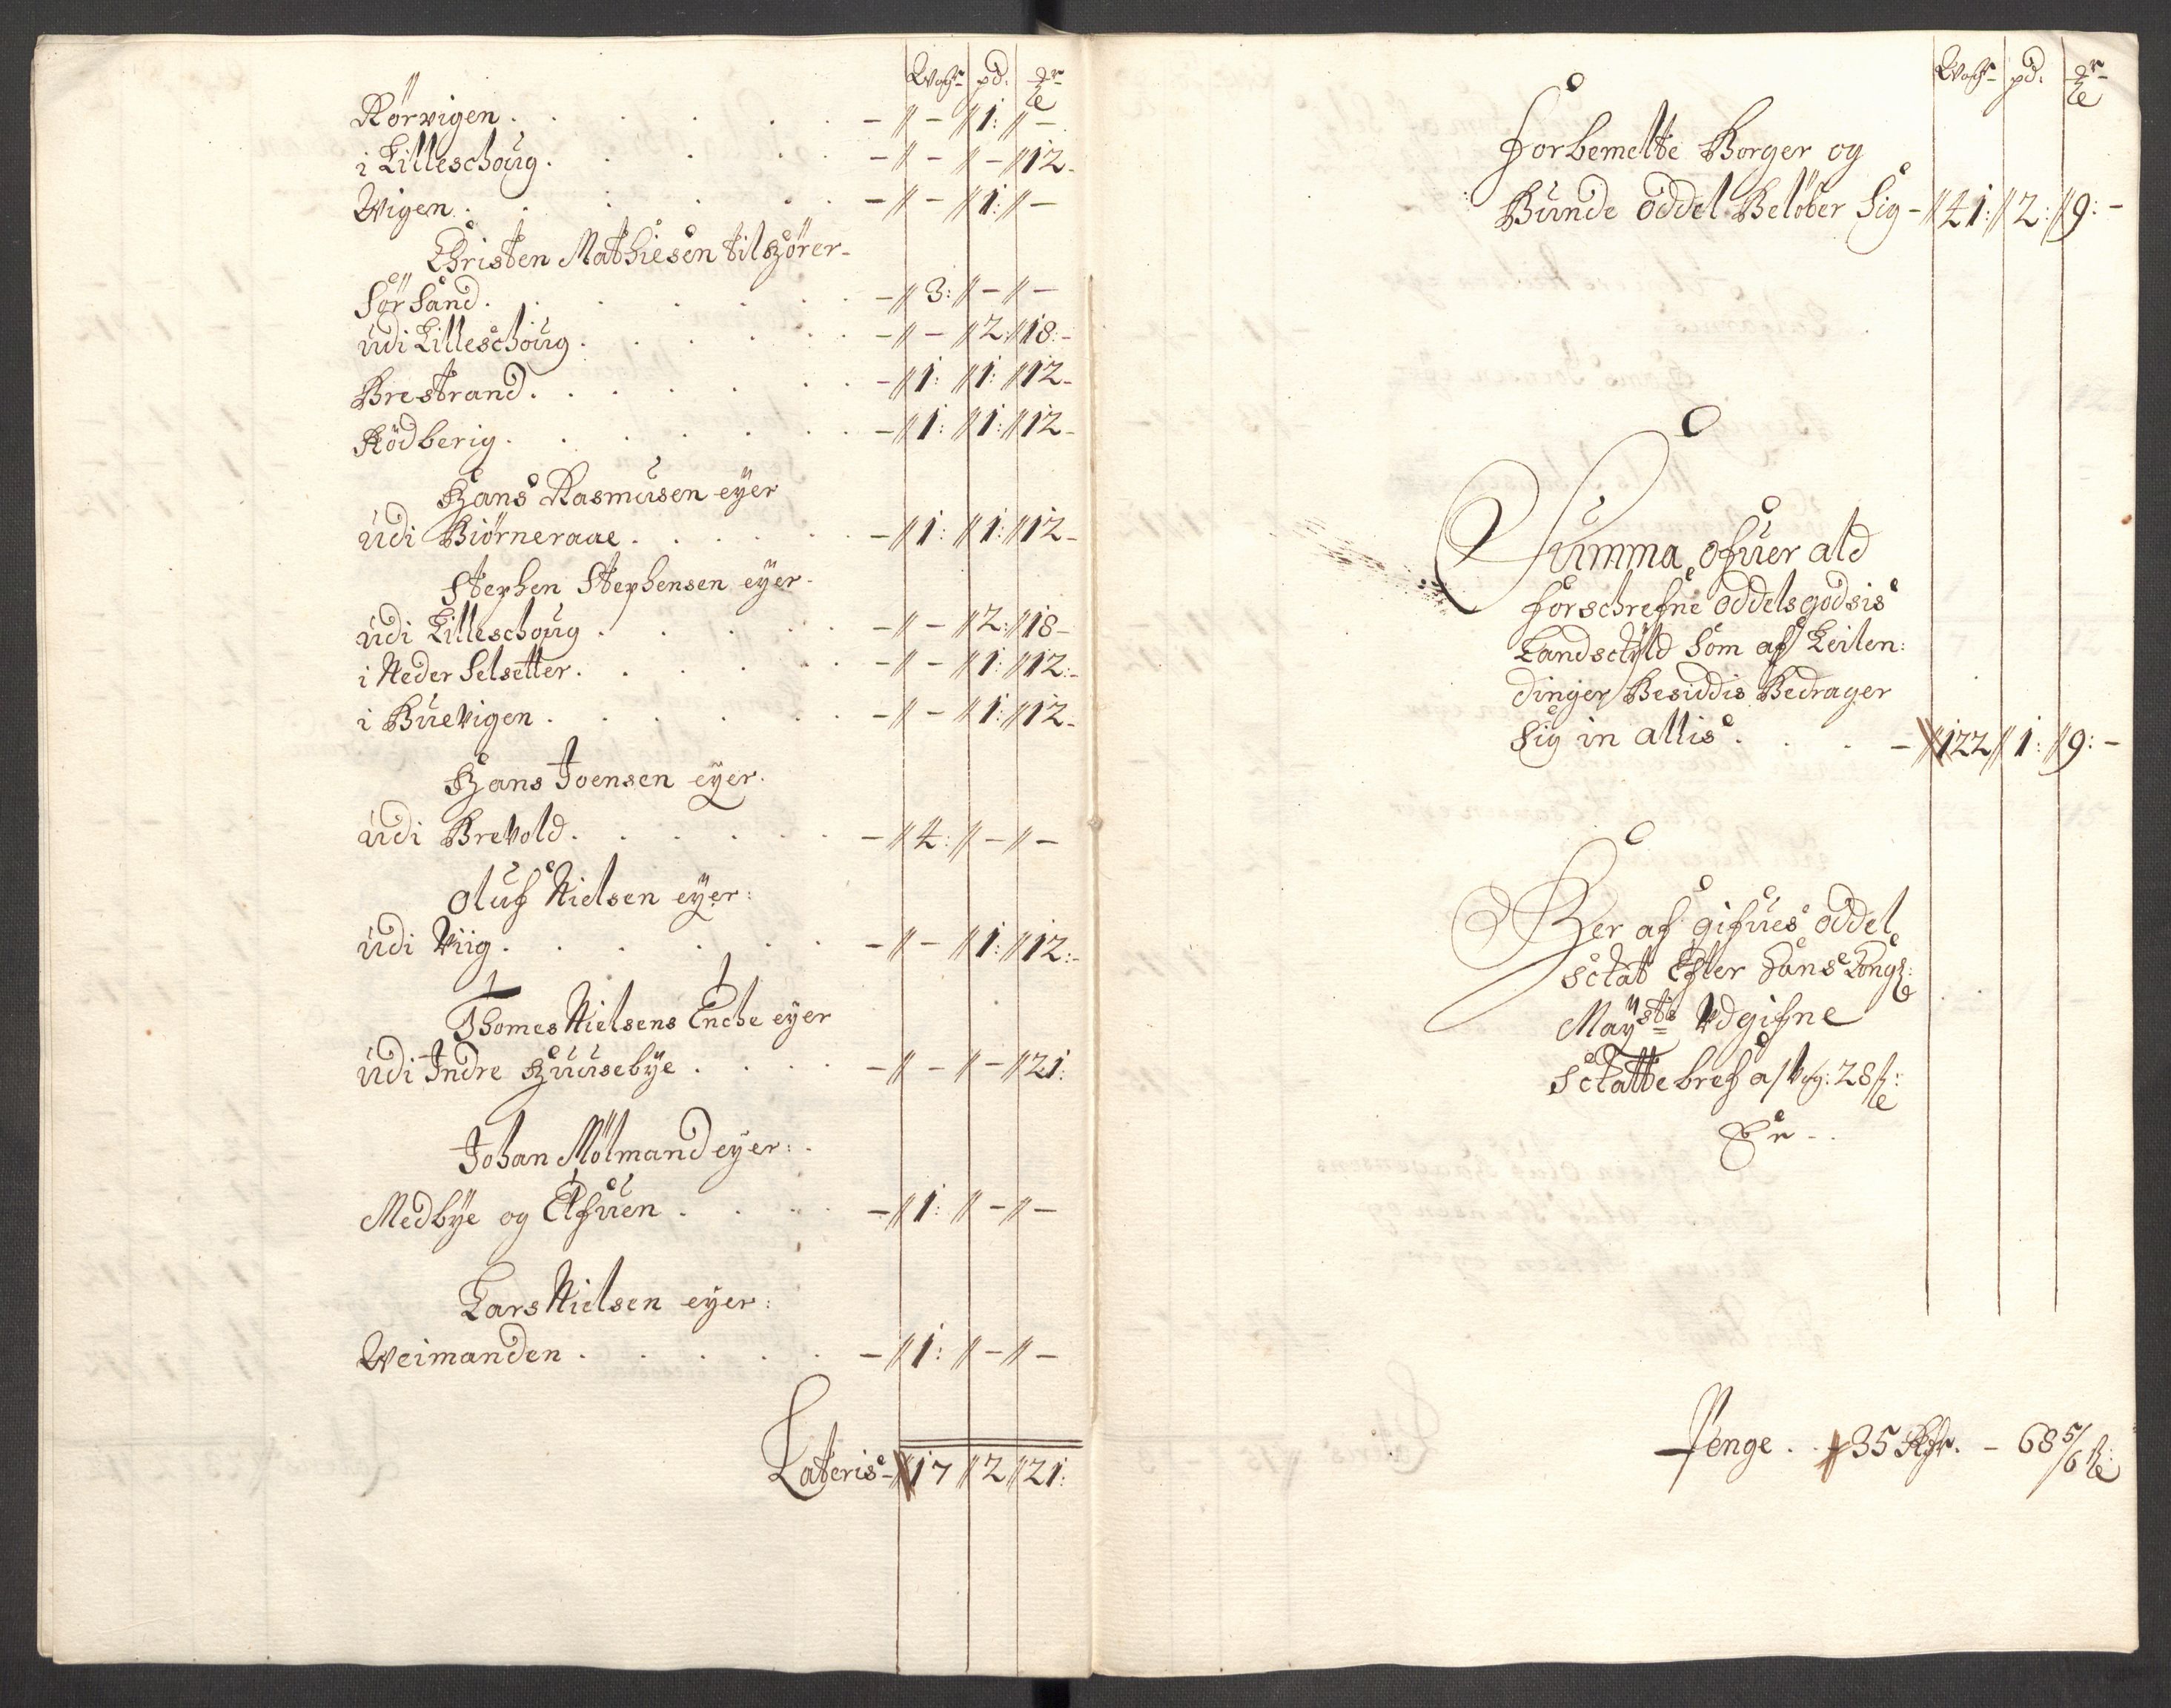 Wogr pd. mr
Rörvigen . . . . . . - // - // 1: // -
i Lilleschoug . . . . . - // - // - // 12 -
Wigen . . . . . - // - // 1: // -
Christen Mathiesen tilhörer -
Sörsand . . . . . - // 3: // - // -
udi Lilleschoug . . . . . - // - // 2: // 18: -
Brestrand . . . . . - // 1: // 1: // 12 -
Rödberig . . . . . - // 1: // 1: // 12 -
Hans Rasmusen eyer
udi Biörneraae . . . . . - // 1: // 1: // 12 -
Stephen Stephensen eyer -
udi Lilleschoug . . . . . - // - // 2: // 18 -
i Neder Selsetter . . . . . - // - // 1: // 12: -
i Buevigen . . . . . - // - // 1: // 12 -
Hans Joensen eyer.
udi Brevold . . . . . - // 4: // - // -
Oluf Nielsen eyer:
udi Viig . . . . . - // - // 1: // 12: -
Thomes Nielsens Enche eyer
udi Indre Huusebye . . . . - // - // - // 21:
Johan Mölmand eyer:
Medbye og Elfuen . . . . - // 1: // - // -
Lars Nielsen eyer:
Weimanden . . . . . - // 1: // - // -
Lateris - // 17 // 2 // 21:
Wogr pd. mr
forbemelte Borger og
Bunde oddel Belöber Sig - // 41: // 2: // 9: -
Summa ofuer ald
forschrefne oddelsgodsis
Landschyld Som af Leilen:
dinger Besiddis Bedrager
Sig in allis . . . - // 122 // 1: // 9: -
Her af gifues oddel
Schat Efter Hans Kongl:
Maysts Udgifne
Schattebref a / Vog: 28 s:
Er -
Penge . . // 35 Rdr. - 68 5/6 s: